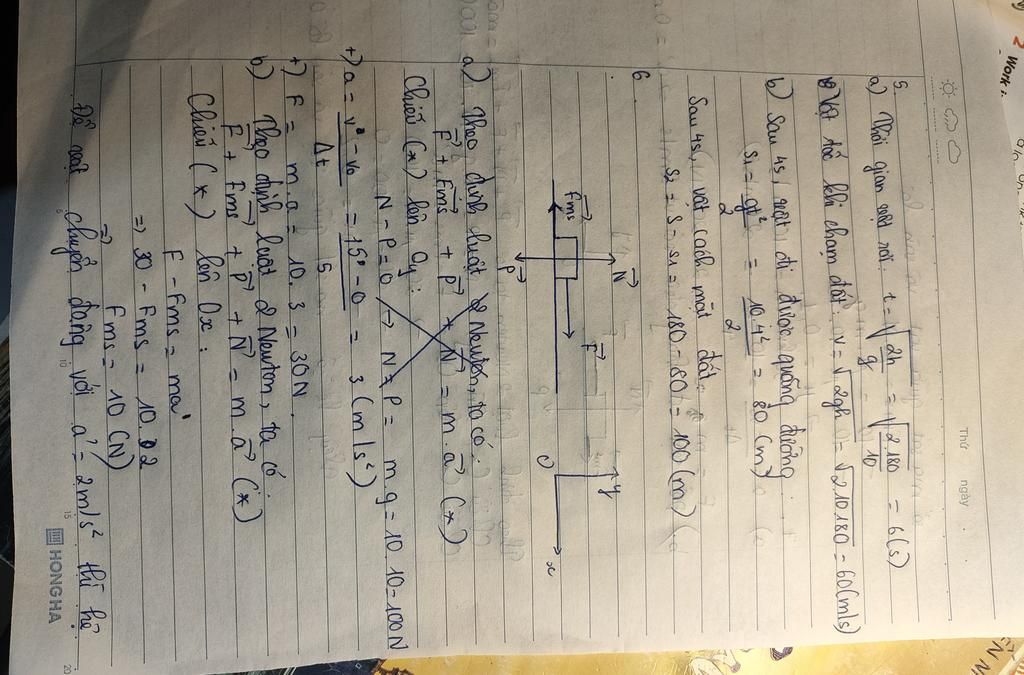 2 Work :
Thứ ngày
5.
a) Thời gian vật rơi: t = √(2h/g) = √(2.180/10) = 6(s)
Vật tốc khi chạm đất: v = √2gh = √2.10.180 = 60(m/s)
b) Sau 4s, vật đi được quãng đường:
s₁ = gt²/2 = 10.4²/2 = 80 (m)
Sau 4s, vật cách mặt đất:
s₂ = s - s₁ = 180 - 80 = 100 (m)
6
N→
Fms→
F→
P→
y
O
x
a) Theo định luật 2 Newton, ta có:
F→ + Fms→ + P→ + N→ = m.a→ (*)
Chiếu (*) lên Oy:
N - P = 0 → N = P = mg = 10.10 = 100N
+) a = v² - v₀ / Δt = 15² - 0 / 5 = 3 (m/s²)
+) F = m.a = 10.3 = 30N.
b) Theo định luật 2 Newton, ta có:
F→ + Fms→ + P→ + N→ = m.a→ (*)
Chiếu (*) lên Ox:
F - Fms = ma'
=> 30 - Fms = 10.2
Fms→ = 10 (N)
Để vật chuyển động với a' = 2m/s² thì hệ
5 10 15 20
HONG HA